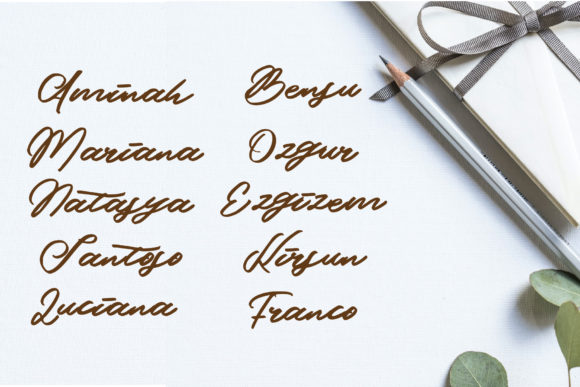 Aminah
Mariana
Natasya
Santoso
Luciana
Bensu
Ozgur
Ezgizem
Franco